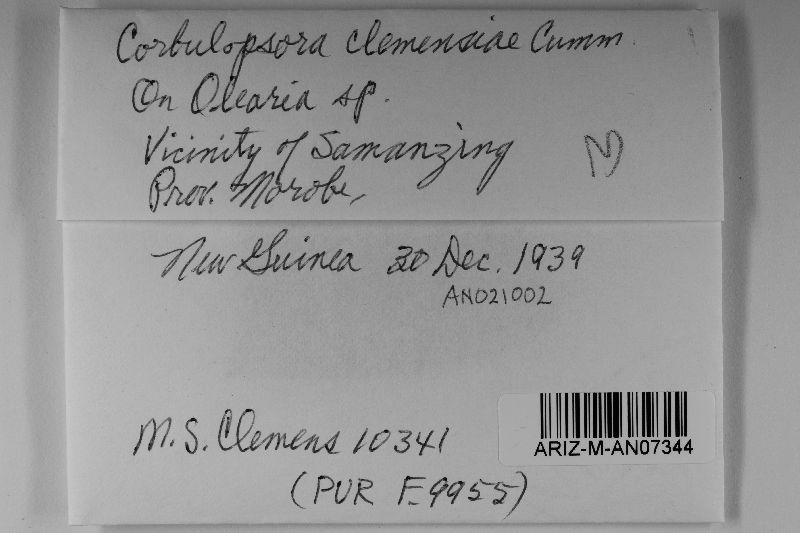 Corbulopsora clemensiae Cumm.
On Olearia sp.
Vicinity of Samanzing
Prov. Morobe,
New Guinea 30 Dec. 1939
AN021002
M. S. Clemens 10341
(PUR F9955)
ARIZ-M-AN07344